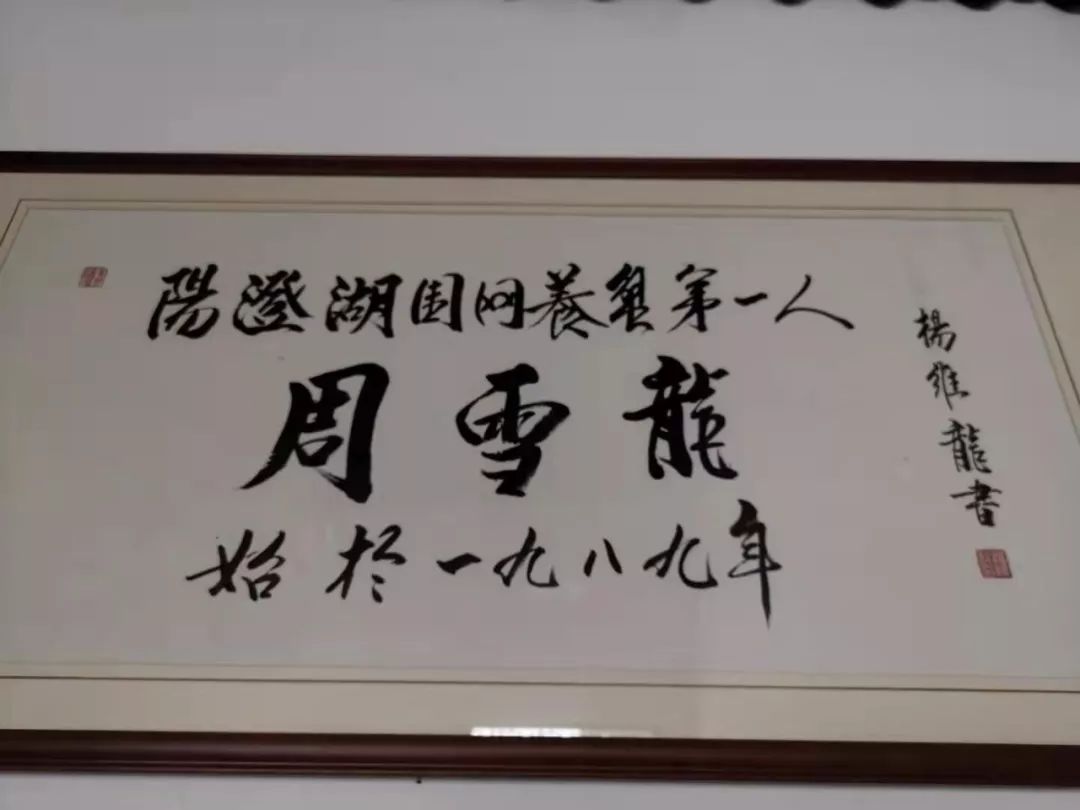 陽澄湖围网養蟹第一人
周雪龍
始於一九八九年
楊維龍書